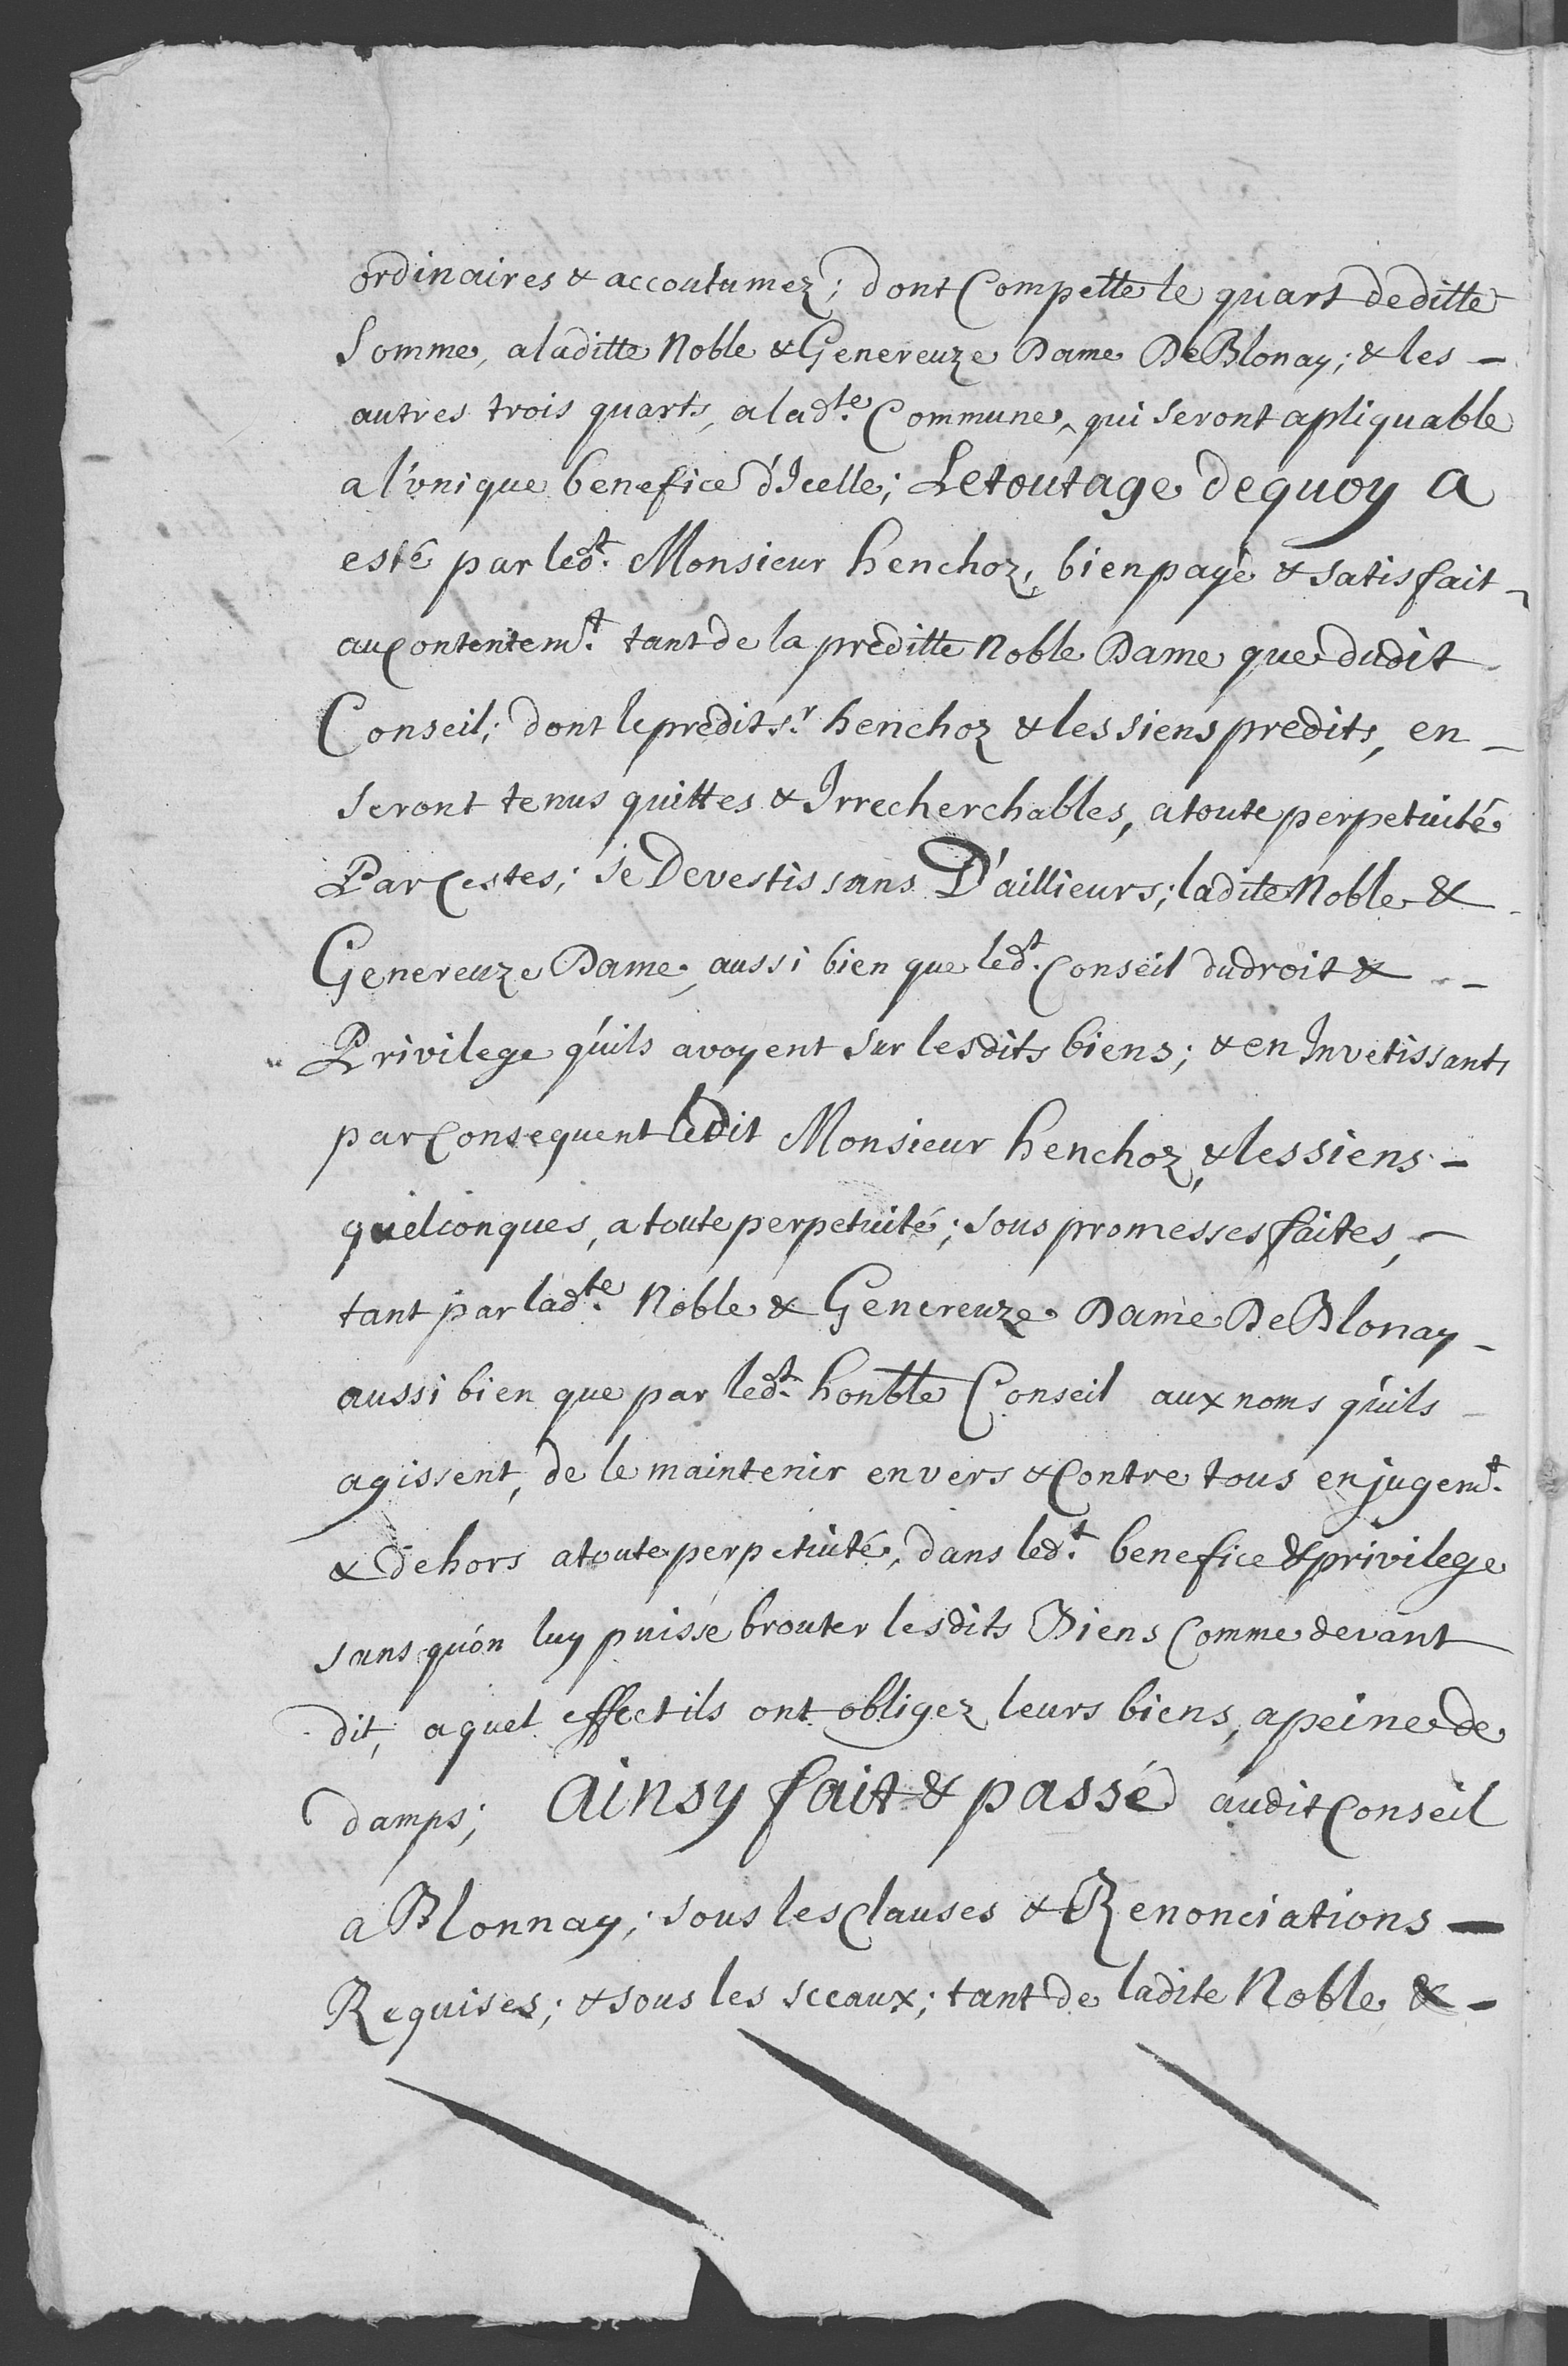 ordinaires & accoutumez; dont Compette le quart de ditte
Somme, a laditte Noble & Genereuze Dame De Blonay; & les -
autres trois quarts, a lad.te Commune, qui seront apliquable
a l'vnique benefice d'Icelle; Le toutage de quoy a
esté par led.t Monsieur henchoz, bien payé & satisfait -
au Contentem.t tant de la preditte Noble Dame que dudit
Conseil; dont le predit s.r henchoz & les siens predits, en -
seront tenus quittes & Irrecherchables, a toute perpetuité
Par Cestes; se Devestissans D'aillieurs; ladite Noble &
Genereuze Dame, aussi bien que led.t Conseil du droit & -
Privilege qu'ils avoyent sur lesdits biens; & en Invetissant
par Consequent ledit Monsieur henchoz, & les siens -
quelconques, a toute perpetuité; sous promesses faites, -
tant par lad.te Noble & Genereuze Dame De Blonay -
aussi bien que par led.t honble Conseil aux noms qu'ils
agissent, de le maintenir envers & Contre tous en jugem.t
& dehors a toute perpetuité, dans led.t benefice & privilege
sans qu'on luy puisse brouter lesdits Biens Comme devant
dit, a quel effect ils ont obligez leurs biens, a peine de
damps; Ainsy fait & passé audit Conseil
a Blonnay; sous les Clauses & Renonciations -
Requises; & sous les sceaux; tant de ladite Noble & -